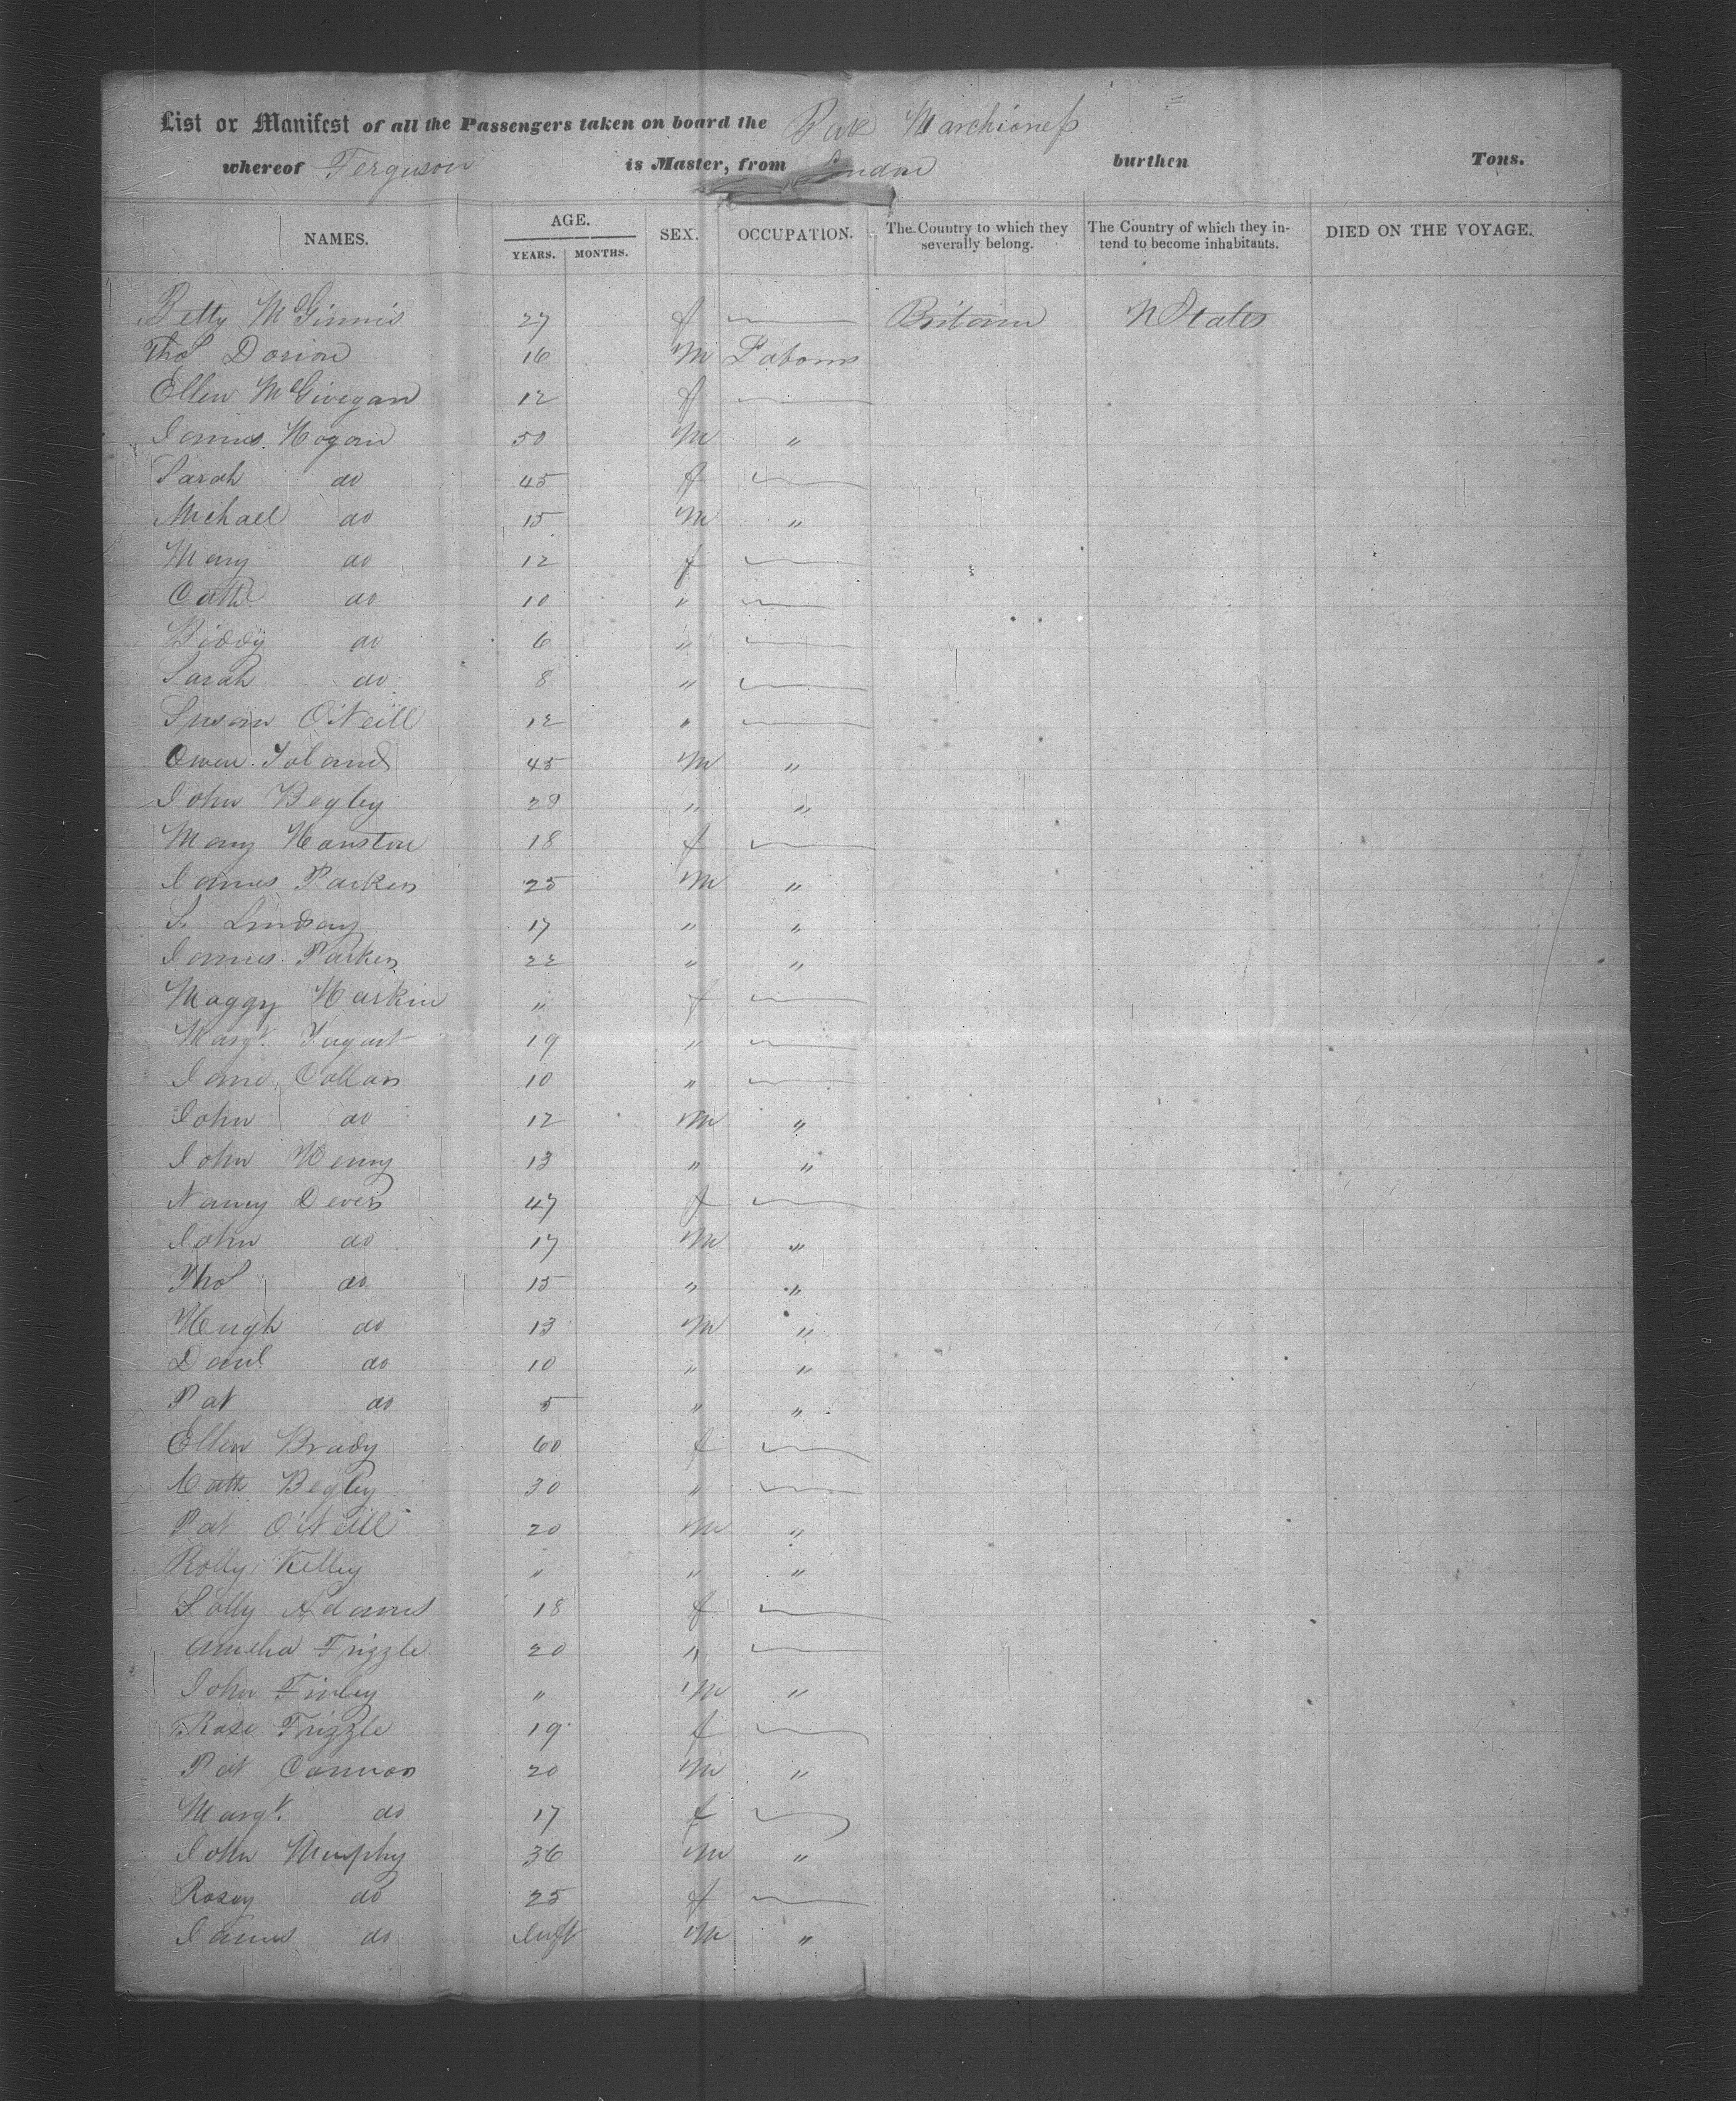 List or Manifest of all the Passengers taken on board the Bark Marchioness
whereof Ferguson is Master, from London burthen Tons.
NAMES. AGE. YEARS. MONTHS. SEX. OCCUPATION. The Country to which they severally belong. The Country of which they intend to become inhabitants. DIED ON THE VOYAGE.
Betty McGinnis 27 f — Britain States
Thos Dorion 16 M
Ellen McGivegan 12 f —
James Hogan 50 M "
Sarah do 45 f —
Michael do 15 M "
Mary do 12 f —
Cath do 10 " —
Biddy do 6 " —
Sarah do 8 " —
Susan O'Neill 12 " —
Owen Toland 45 M "
John Begley 28 " "
Mary Hanston 18 f —
James Parker 25 M "
S. Lindsay 17 " "
James Parker 22 " "
Maggy Harkin " f —
Margt. Tagart 19 " —
Jane Collan 10 " —
John do 12 M "
John Henry 13 " "
Nancy Dever 47 f —
John do 17 M "
Thos do 15 " "
Hugh do 13 M "
Danl do 10 " "
Pat do 5 " "
Ellen Brady 60 f —
Cath Begley 30 " —
Pat O'Neill 20 M "
Rolly Kelley " " "
Sally Adams 18 f —
Amelia Frizzle 20 " —
John Finley " M "
Rose Frizzle 19 f —
Pat Connor 20 M "
Margt. do 17 f —
John Murphy 36 M "
Rosey do 25 f —
James do Inft M "